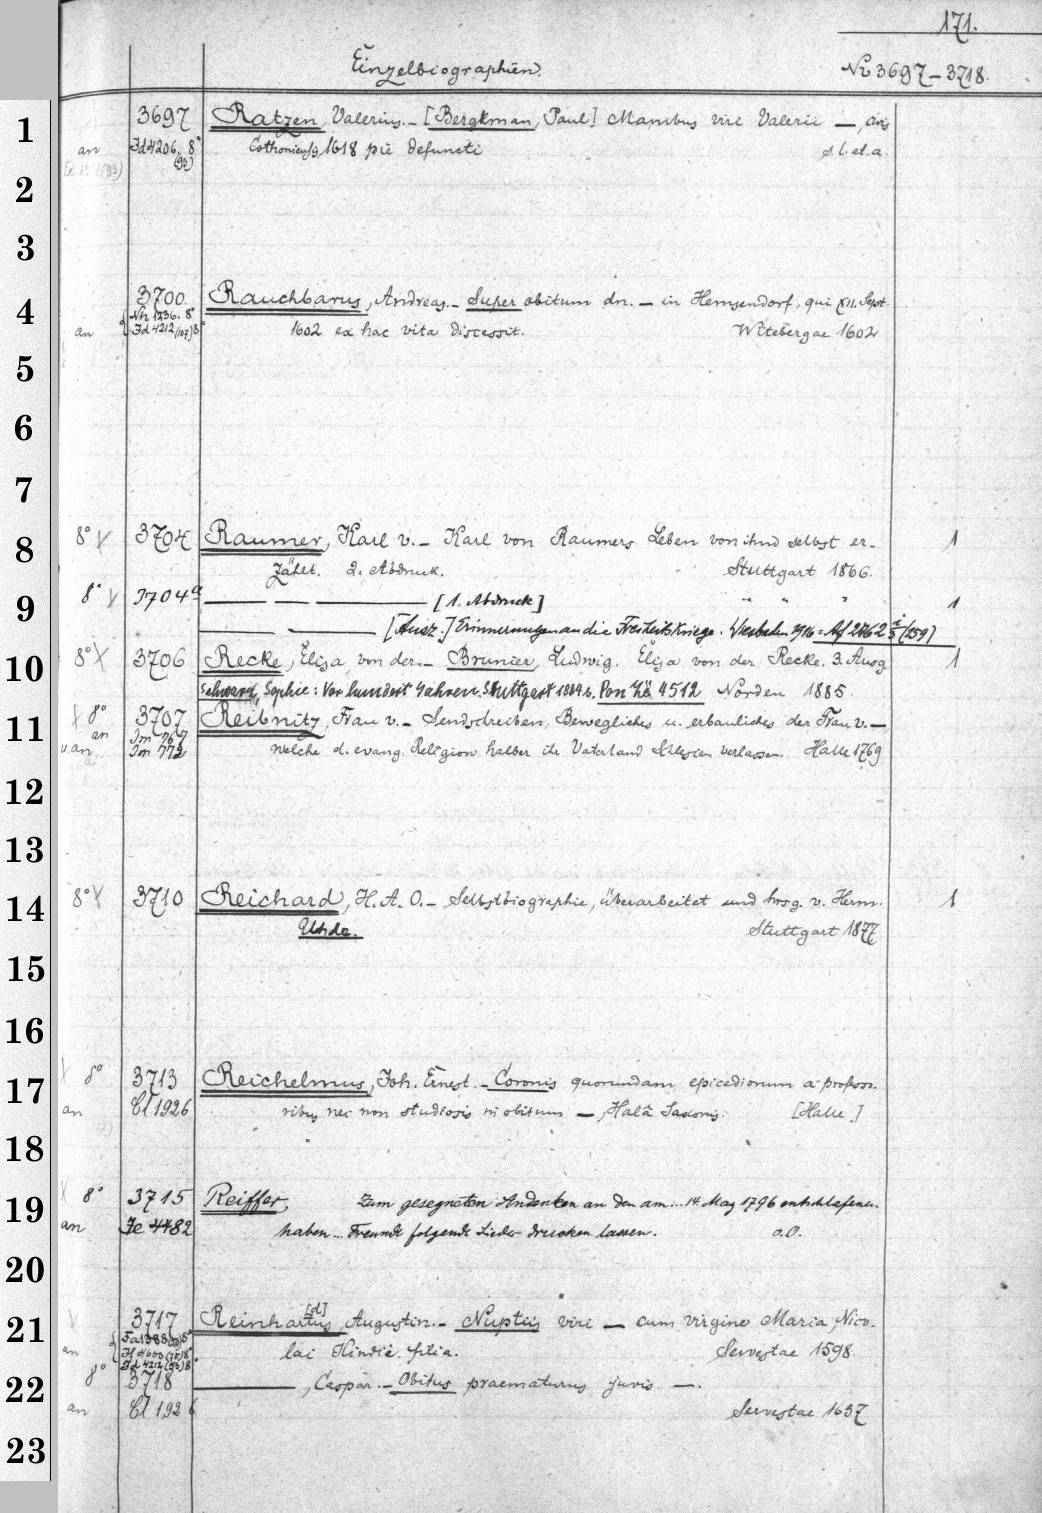 171.
Einzelbiographien.
Nr 3697–3718.
1
3697 Ratzen, Valerius. – [Bergkman, Paul] Manibus viri Valerii —, civis
an Id 4206, 8° Cothoniensis 1618 pie defuncti s. l. et. a.
(93)
2
3
3700. Rauchbarus, Andreas. – Super obitum dn. — in Hemsendorf, qui XII. Sept.
4
Nr 1236. 8°
an Id 4212 (107) 8° 1602 ex hac vita discessit. Witebergae 1602
5
6
7
8° 3704 Raumer, Karl v. – Karl von Raumers Leben von ihm selbst er- 1
8
zählt. 2. Abdruck. Stuttgart 1866.
8° 3704a — — — [1. Abdruck] " " " 1
9
— — [Ausz.] Erinnerungen an die Freiheitskriege. Wiesbaden 1916 = Af 2762 (159)
8° 3706 Recke, Elisa von der. – Brunier, Ludwig. Elisa von der Recke. 3. Ausg. 1
10
Schwarz, Sophie: Vor hundert Jahren. Stuttgart 1884 s. Pon Zö 4512 Norden 1885.
8° 3707 Reibnitz, Frau v. – Sendschreiben, Bewegliches u. erbauliches der Frau v. —,
11
an Im 767
u. an Im 772 welche d. evang. Religion halber ihr Vaterland Schlesien verlassen. Halle 1769
12
13
8° 3710 Reichard, H. A. O. – Selbstbiographie, überarbeitet und hrsg. v. Herm. 1
14
Uhde. Stuttgart 1877
15
16
8° 3713 Reichelmus, Joh. Ernest. – Coronis quorundam epicediorum a profess-
17
an Cl 1926 ribus nec non studiosis in obitum —, Halâ Saxonis. [Halle]
18
8° 3715 Reiffer, Zum gesegneten Andenken an den am ... 14. May 1796 entschlafenen.
19
an Ic 4482 haben ... Freunde folgende Lieder drucken lassen. o.O.
20
3717 Reinhartus [d], Augustin. – Nuptiis viri — cum virgine Maria, Nico-
21
Fa 1388 8°
an lai filia. Servestae 1598.
Id 4212 8°
8° 3718 —, Caspar. – Obitus praematurus juvis —.
22
an Cl 1926 Servestae 1637
23